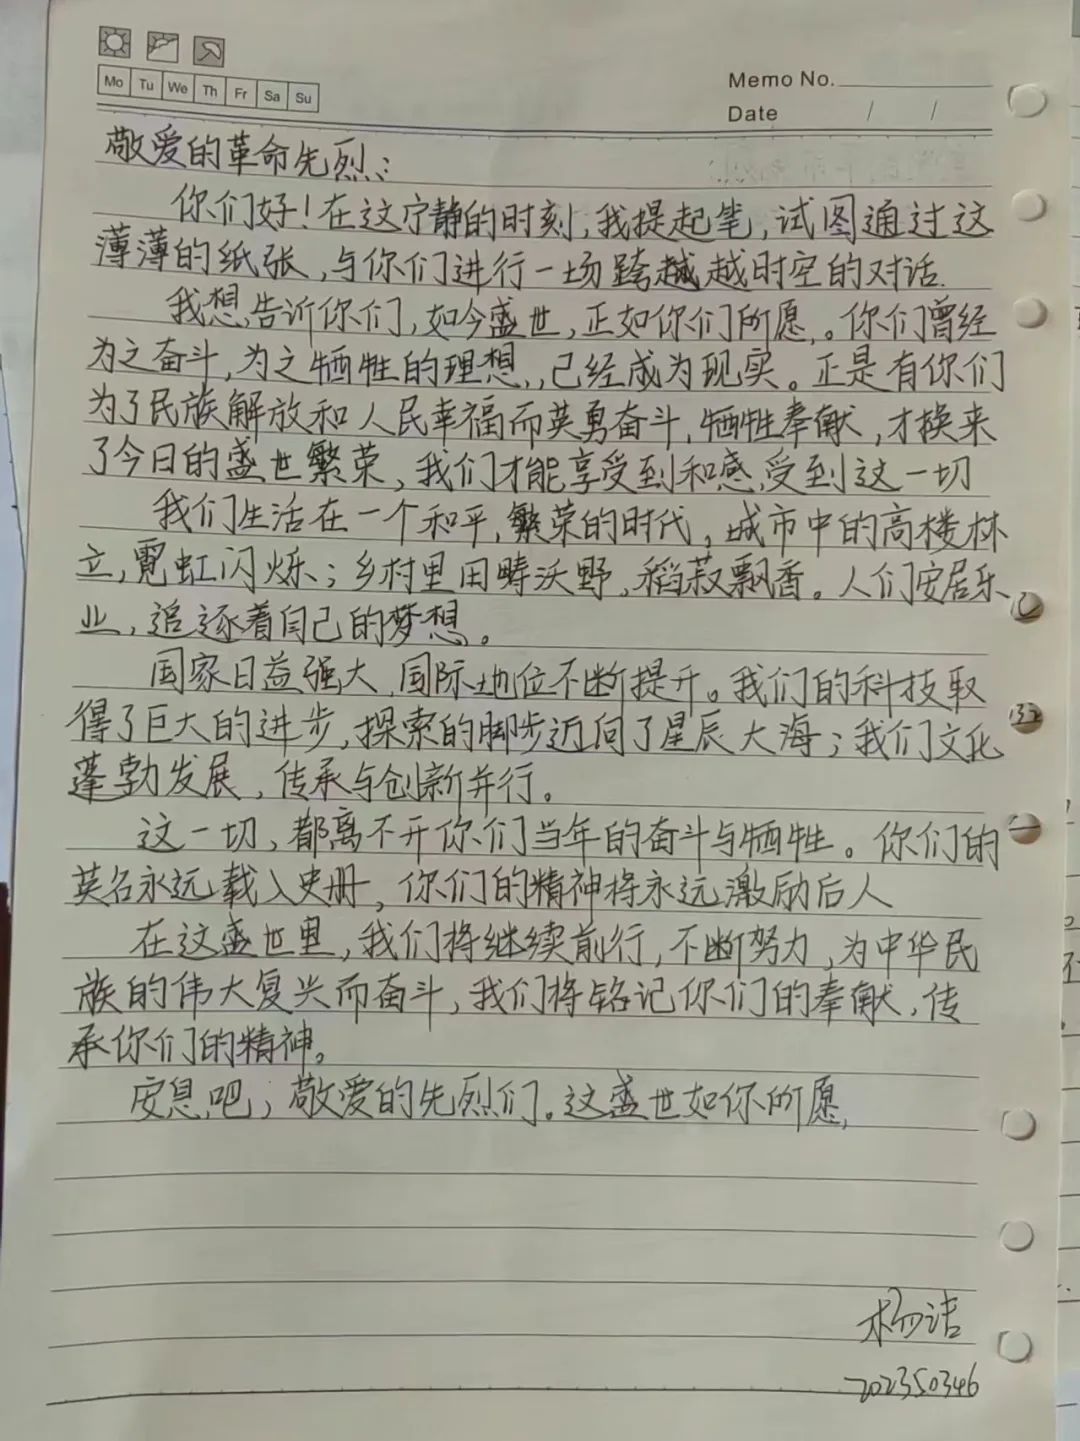 Mo Tu We Th Fr Sa Su
Memo No.
Date / /
敬爱的革命先烈：
你们好！在这宁静的时刻，我提起笔，试图通过这
薄薄的纸张，与你们进行一场跨越越时空的对话.
我想告诉你们，如今盛世，正如你们所愿。你们曾经
为之奋斗，为之牺牲的理想，已经成为现实。正是有你们
为了民族解放和人民幸福而英勇奋斗，牺牲奉献，才换来
了今日的盛世繁荣，我们才能享受到和感受到这一切
我们生活在一个和平，繁荣的时代，城市中的高楼林
立，霓虹闪烁；乡村里田畴沃野，稻菽飘香。人们安居乐
业，追逐着自己的梦想。
国家日益强大，国际地位不断提升。我们的科技取
得了巨大的进步，探索的脚步迈向了星辰大海；我们文化
蓬勃发展，传承与创新并行。
这一切，都离不开你们当年的奋斗与牺牲。你们的
英名永远载入史册，你们的精神将永远激励后人
在这盛世里，我们将继续前行，不断努力，为中华民
族的伟大复兴而奋斗，我们将铭记你们的奉献，传
承你们的精神。
安息吧，敬爱的先烈们。这盛世如你所愿，
杨洁
202350346